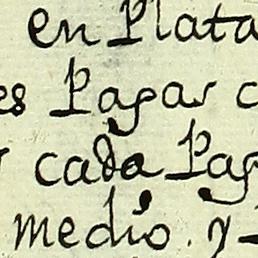 en Plata
es Pagas c
cada Pag
medio. y